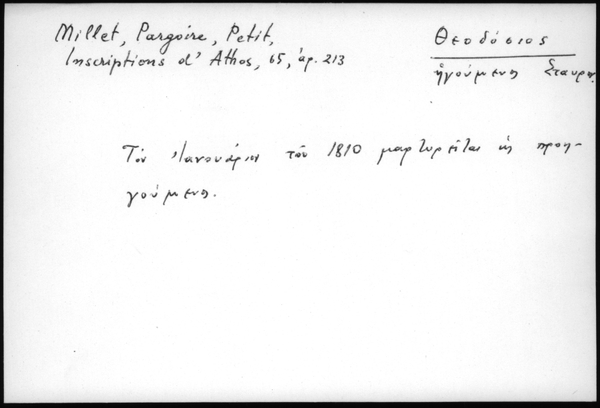 Millet, Pargoire, Petit,
Inscriptions d' Athos, 65, ἀρ. 213
Θεοδόσιος
ἡγούμενος Σταυρ.
Τὸν Ἰανουάριον τοῦ 1810 μαρτυρεῖται ὡς προη-
γούμενος.